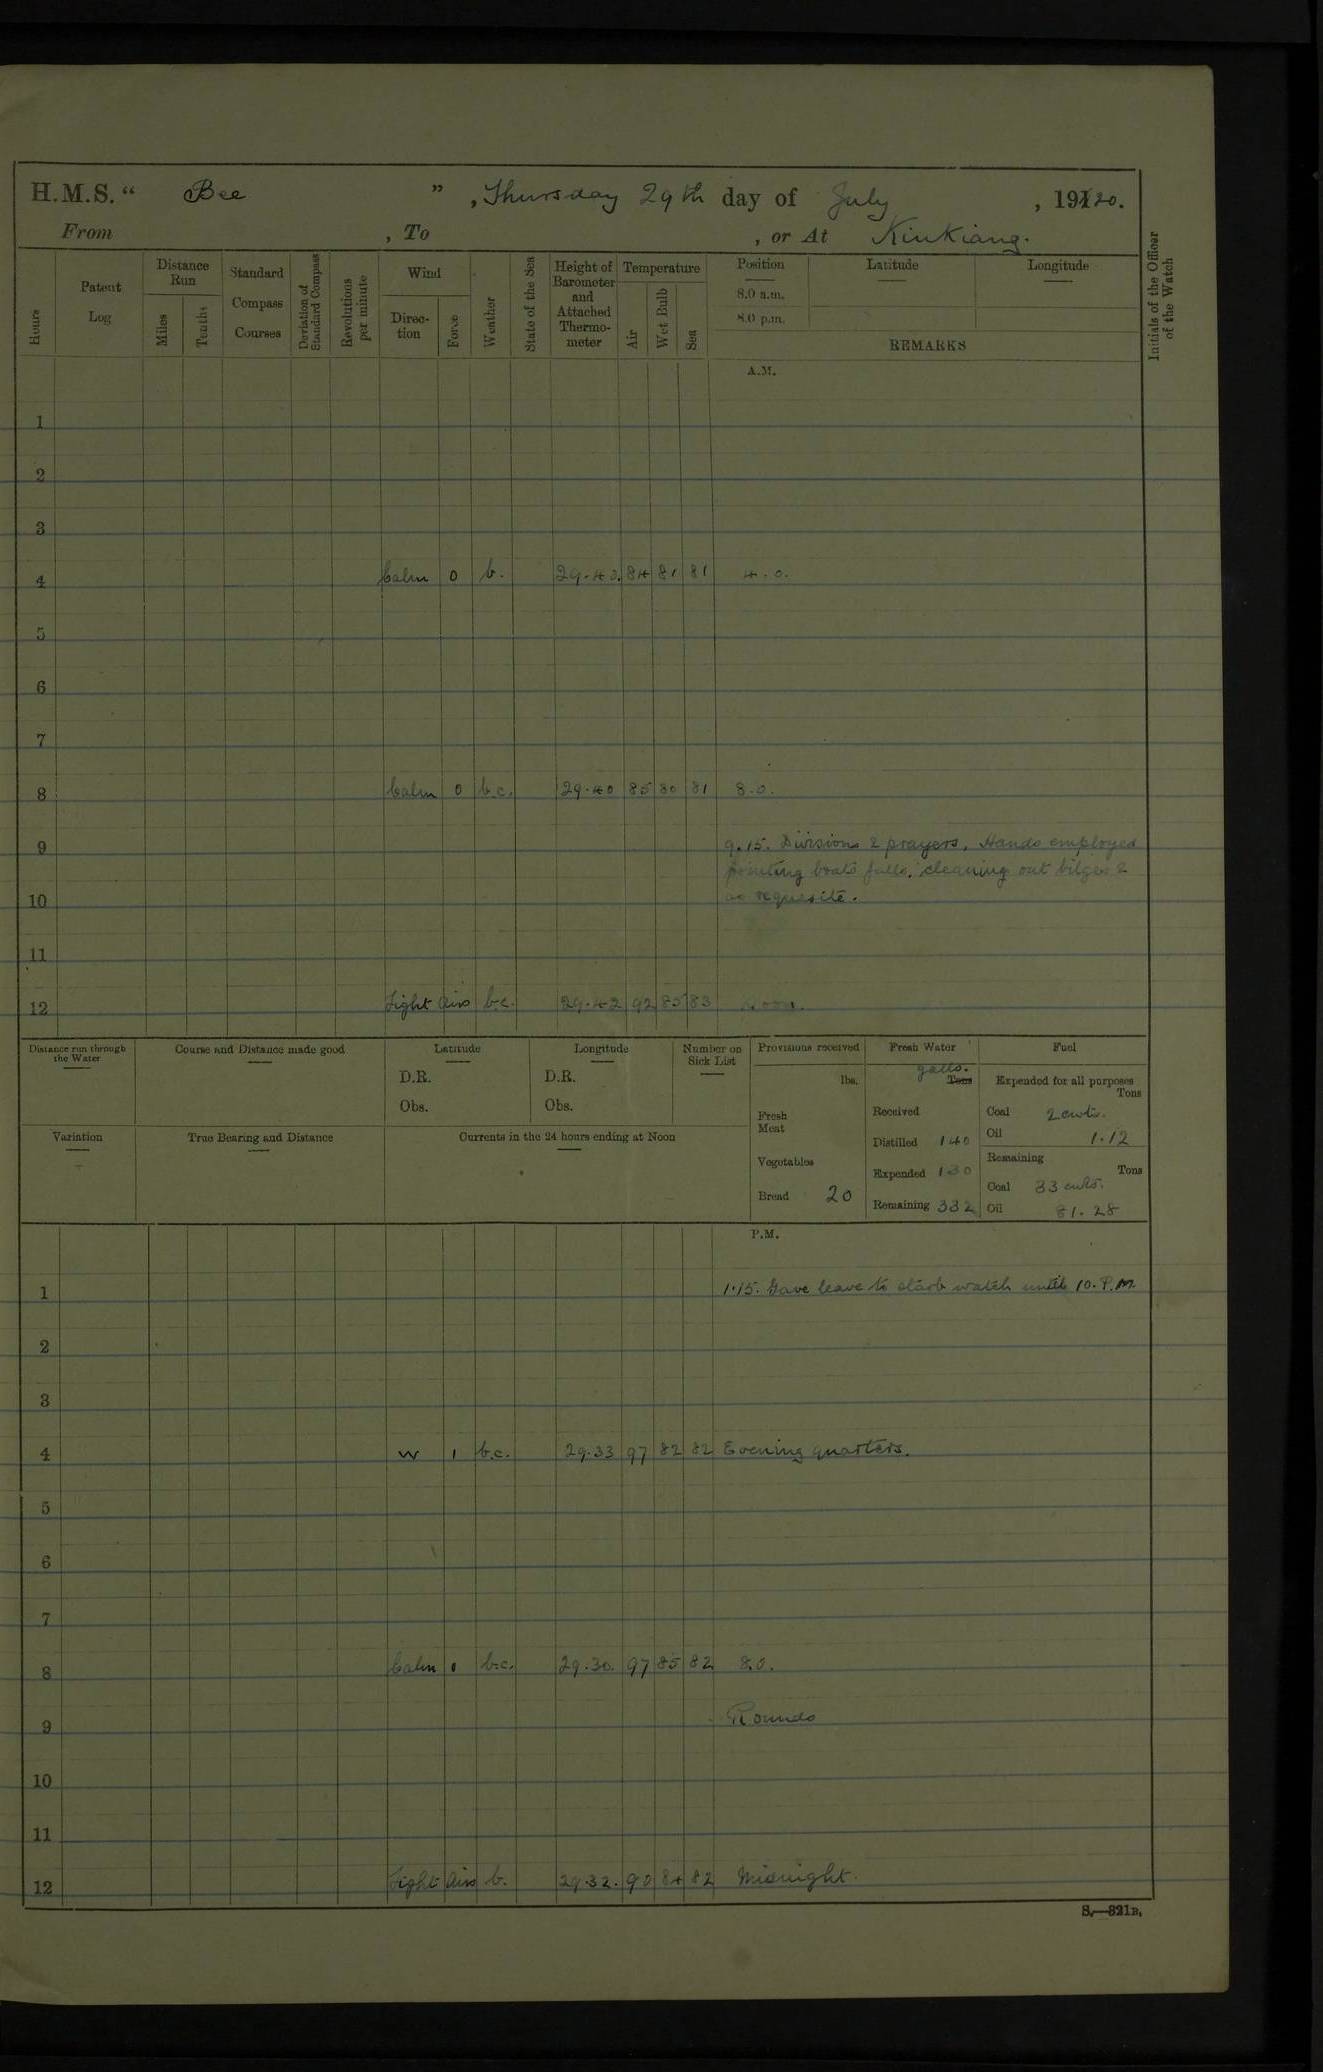 H.M.S. “ Bee ” , Thursday 29th day of July , 1920.
From , To , or At Kinkiang.
Hours
Patent Log
Distance Run
Miles
Tenths
Standard Compass Courses
Deviation of Standard Compass
Revolutions per minute
Wind
Direction
Force
Weather
State of the Sea
Height of Barometer and Attached Thermometer
Temperature
Air
Wet Bulb
Sea
Position
8.0 a.m.
8.0 p.m.
Latitude
Longitude
REMARKS
Initials of the Officer of the Watch
A.M.
1
2
3
4 Calm 0 b. 29.40. 84 81 81 4.0.
5
6
7
8 Calm 0 b.c. 29.40 85 80 81 8.0.
9 9.15. Divisions & prayers. Hands employed
pointing boats falls, cleaning out bilges &
10 as requisite.
11
12 Light airs b.c. 29.42 92 85 83 Noon.
Distance run through the Water
Course and Distance made good
Latitude
D.R.
Obs.
Longitude
D.R.
Obs.
Number on Sick List
Variation
True Bearing and Distance
Currents in the 24 hours ending at Noon
Provisions received
lbs.
Fresh Meat
Vegetables
Bread 20
Fresh Water
galls.
Tons
Received
Distilled 140
Expended 130
Remaining 332
Fuel
Expended for all purposes
Tons
Coal 2 cwts.
Oil 1.12
Remaining
Tons
Coal 33 cwts.
Oil 81.28
P.M.
1 1.15. Gave leave to starb watch until 10. P.M.
2
3
4 W 1 b.c. 29.33 97 82 82 Evening quarters.
5
6
7
8 Calm 0 b.c. 29.30. 97 85 82 8.0.
9 Rounds
10
11
12 Light airs b. 29.32. 90 84 82 Midnight.
S.—321B.